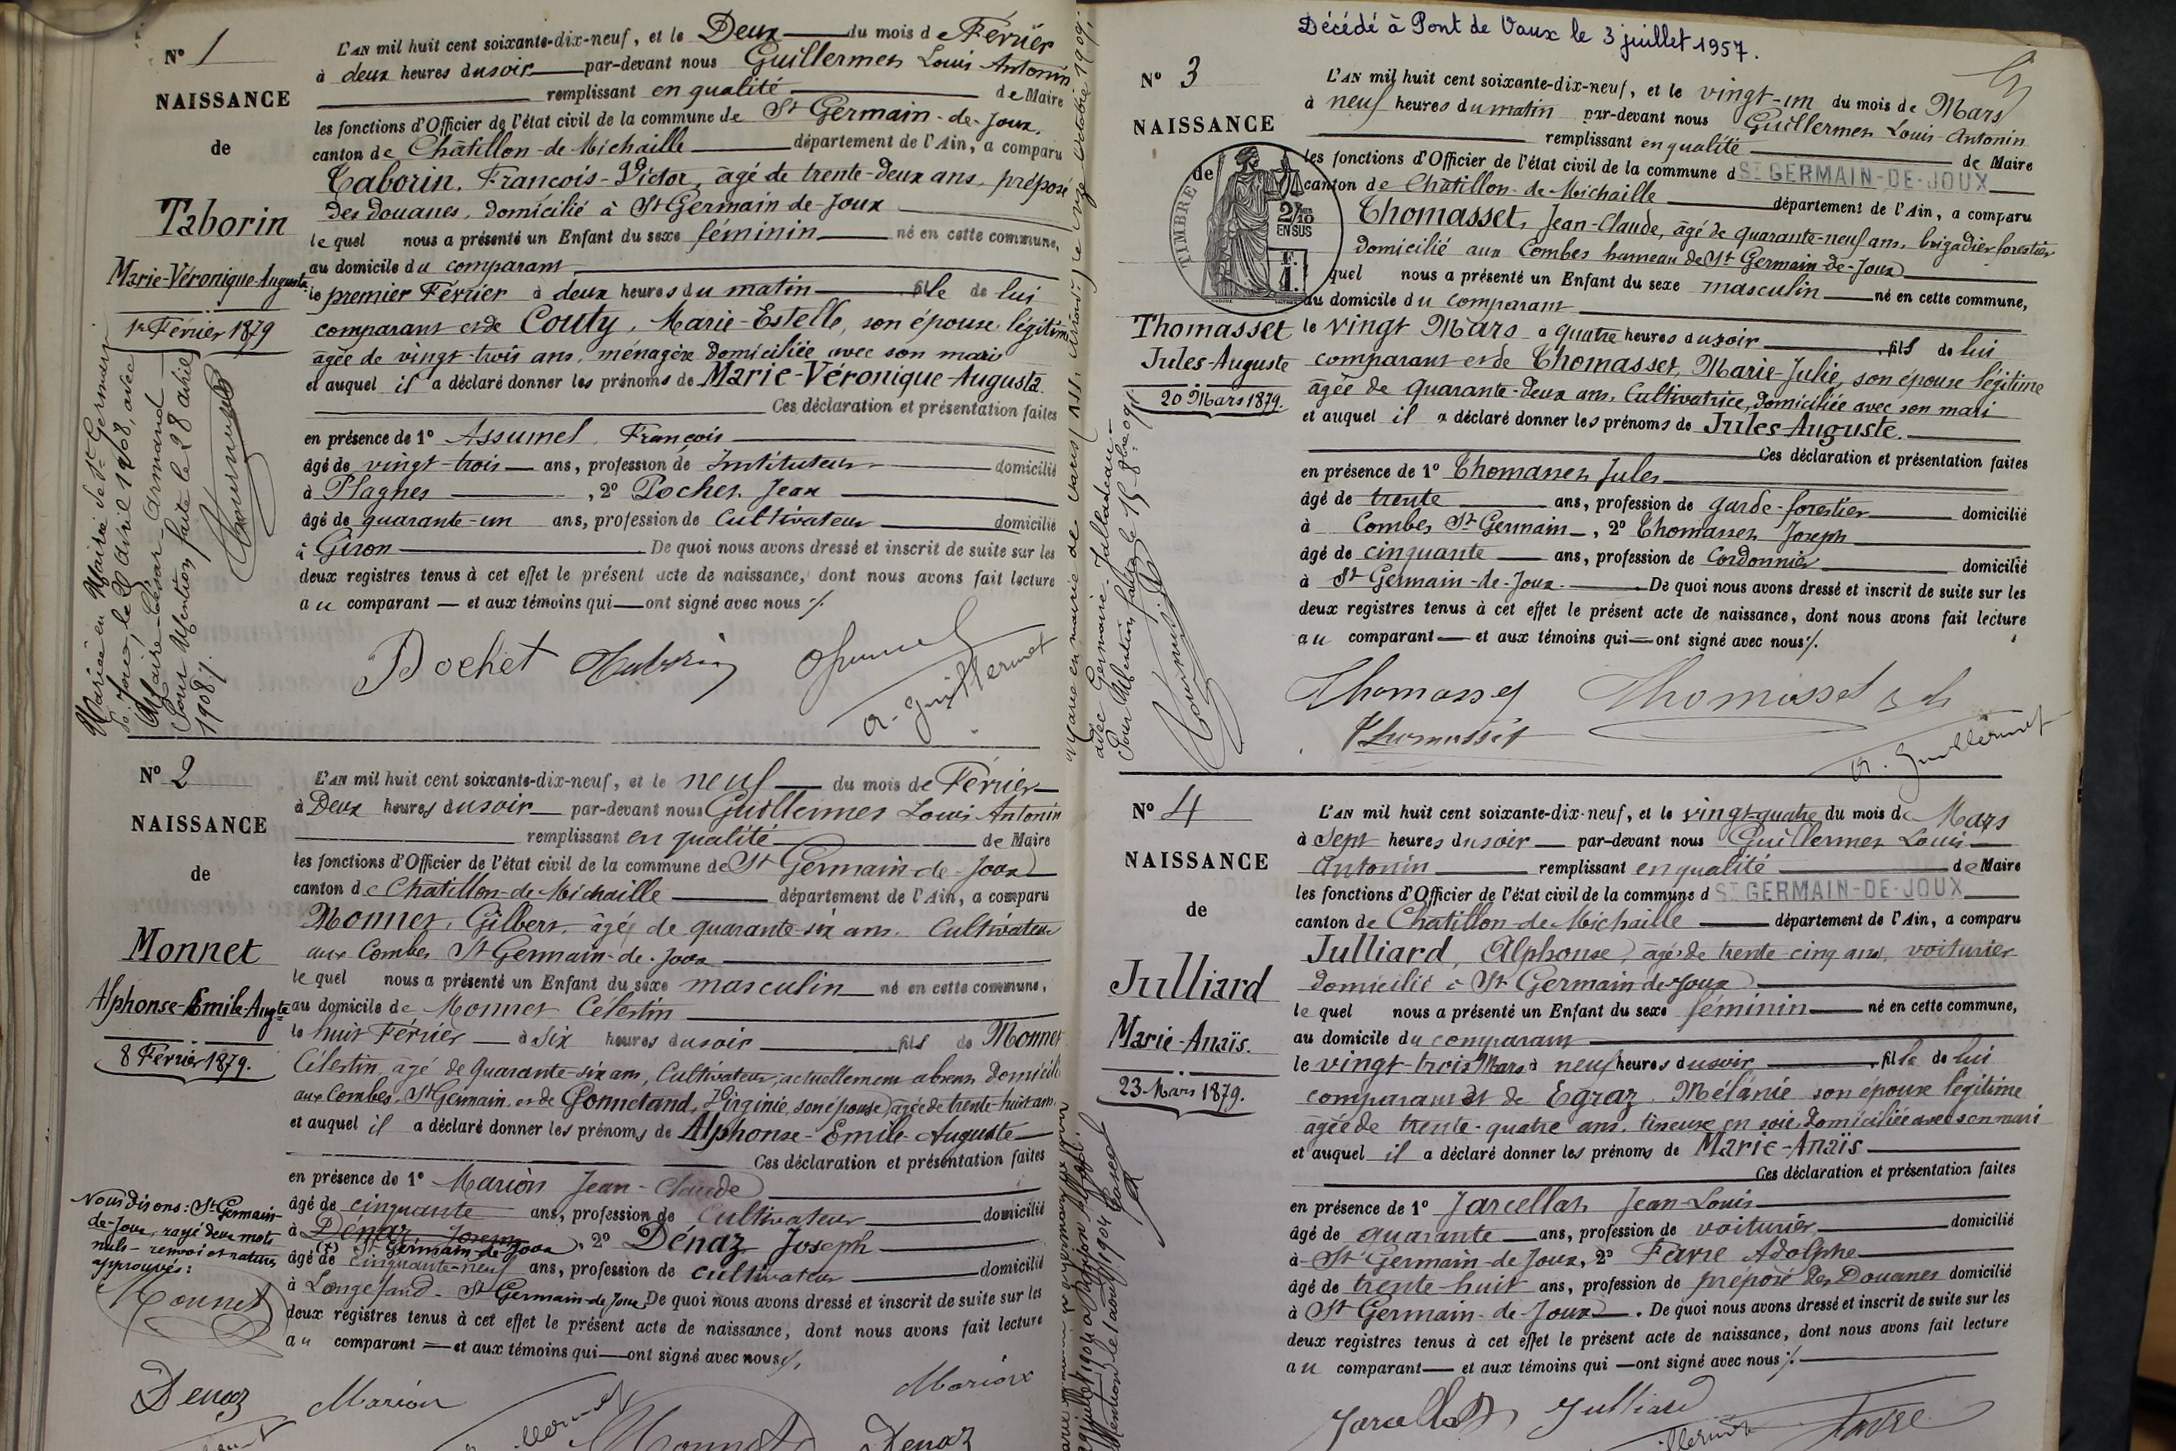 N° 1
NAISSANCE
de
Taborin
Marie-Véronique-Augusta
1er Février 1879
L'AN mil huit cent soixante-dix-neuf, et le Deux du mois de Février
à deux heures du soir par-devant nous Guillermet Louis Antonin
remplissant en qualité de Maire
les fonctions d'Officier de l'état civil de la commune de St Germain-de-Joux,
canton de Châtillon-de-Michaille département de l'Ain, a comparu
Taborin, François-Victor, âgé de trente-deux ans, préposé
des douanes, domicilié à St Germain-de-Joux
lequel nous a présenté un Enfant du sexe féminin né en cette commune,
au domicile du comparant
le premier Février à deux heures du matin fille de lui
comparant et de Couty, Marie-Estelle, son épouse légitime
âgée de vingt-trois ans, ménagère domiciliée avec son mari
et auquel il a déclaré donner les prénoms de Marie-Véronique-Augusta.
Ces déclaration et présentation faites
en présence de 1° Assumel, François
âgé de vingt-trois ans, profession de Instituteur domicilié
à Plagnes, 2° Pochet, Jean
âgé de quarante-un ans, profession de cultivateur domicilié
à Giron De quoi nous avons dressé et inscrit de suite sur les
deux registres tenus à cet effet le présent acte de naissance, dont nous avons fait lecture
au comparant et aux témoins qui ont signé avec nous
Pochet
A. Guillermet
Mariée en Mairie de St Germain
de Joux, le avril 1908, avec
César-Armand
Pour Mention faite le 28 avril
1908
N° 2
NAISSANCE
de
Monnet
Alphonse-Emile-Augte
8 Février 1879.
L'AN mil huit cent soixante-dix-neuf, et le neuf du mois de Février
à Deux heures du soir par-devant nous Guillermet Louis Antonin
remplissant en qualité de Maire
les fonctions d'Officier de l'état civil de la commune de St Germain-de-Joux
canton de Châtillon-de-Michaille département de l'Ain, a comparu
Monnet, Gilbert, âgé de quarante-six ans, Cultivateur
aux Combes St Germain-de-Joux
lequel nous a présenté un Enfant du sexe masculin né en cette commune,
au domicile de Monnet Célestin
le huit Février à six heures du soir fils de Monnet
Célestin, âgé de quarante-six ans, Cultivateur, actuellement absent domicilié
aux Combes, St Germain et de Gonnetand, Virginie, son épouse, âgée de trente-huit ans
et auquel il a déclaré donner les prénoms de Alphonse-Emile-Auguste
Ces déclaration et présentation faites
en présence de 1° Marion Jean-Claude
âgé de cinquante ans, profession de Cultivateur domicilié
à Dénaz Joseph St Germain-de-Joux, 2° Dénaz Joseph
âgé de cinquante-neuf ans, profession de cultivateur domicilié
à Longefand - St Germain-de-Joux De quoi nous avons dressé et inscrit de suite sur les
deux registres tenus à cet effet le présent acte de naissance, dont nous avons fait lecture
au comparant et aux témoins qui ont signé avec nous
Nous disons: St Germain-
de-Joux, rayé deux mots
nuls - renvoi et rature
approuvés:
Monnet
Denaz
Marion
Marion
Monnet
Denaz
Décédé à Pont de Vaux le 3 juillet 1957.
N° 3
NAISSANCE
de
TIMBRE
2/10
EN SUS
Thomasset
Jules-Auguste
20 Mars 1879.
L'AN mil huit cent soixante-dix-neuf, et le vingt-un du mois de Mars
à neuf heures du matin par-devant nous Guillermet Louis Antonin
remplissant en qualité de Maire
les fonctions d'Officier de l'état civil de la commune d ST GERMAIN-DE-JOUX
canton de Châtillon-de-Michaille département de l'Ain, a comparu
Thomasset, Jean-Claude, âgé de quarante-neuf ans, brigadier forestier
domicilié aux Combes hameau de St Germain-de-Joux
quel nous a présenté un Enfant du sexe masculin né en cette commune,
au domicile du comparant
le vingt Mars à quatre heures du soir fils de lui
comparant et de Thomasset, Marie-Julie, son épouse légitime
âgée de quarante-deux ans, Cultivatrice, domiciliée avec son mari
et auquel il a déclaré donner les prénoms de Jules-Auguste.
Ces déclaration et présentation faites
en présence de 1° Thomasset Jules
âgé de trente ans, profession de garde-forestier domicilié
à Combes St Germain, 2° Thomasset Joseph
âgé de cinquante ans, profession de Cordonnier domicilié
à St Germain-de-Joux. De quoi nous avons dressé et inscrit de suite sur les
deux registres tenus à cet effet le présent acte de naissance, dont nous avons fait lecture
au comparant et aux témoins qui ont signé avec nous
Thomasset
Thomasset
Thomasset
A. Guillermet
avec Germaine
Pour Mention faite le
N° 4
NAISSANCE
de
Julliard
Marie-Anaïs.
23 Mars 1879.
L'AN mil huit cent soixante-dix-neuf, et le vingt-quatre du mois de Mars
à sept heures du soir par-devant nous Guillermet Louis
Antonin remplissant en qualité de Maire
les fonctions d'Officier de l'état civil de la commune d ST GERMAIN-DE-JOUX
canton de Châtillon-de-Michaille département de l'Ain, a comparu
Julliard, Alphonse, âgé de trente-cinq ans, voiturier
domicilié à St Germain de Joux
lequel nous a présenté un Enfant du sexe féminin né en cette commune,
au domicile du comparant
le vingt-trois Mars à neuf heures du soir fille de lui
comparant et de Egraz Mélanie son épouse légitime
âgée de trente-quatre ans, tisseuse en soie, domiciliée avec son mari
et auquel il a déclaré donner les prénoms de Marie-Anaïs
Ces déclaration et présentation faites
en présence de 1° Jarcellat Jean-Louis
âgé de quarante ans, profession de voiturier domicilié
à St Germain de Joux, 2° Favre Adolphe
âgé de trente-huit ans, profession de préposé des Douanes domicilié
à St Germain-de-Joux. De quoi nous avons dressé et inscrit de suite sur les
deux registres tenus à cet effet le présent acte de naissance, dont nous avons fait lecture
au comparant et aux témoins qui ont signé avec nous
Jarcellat
Julliard
Favre